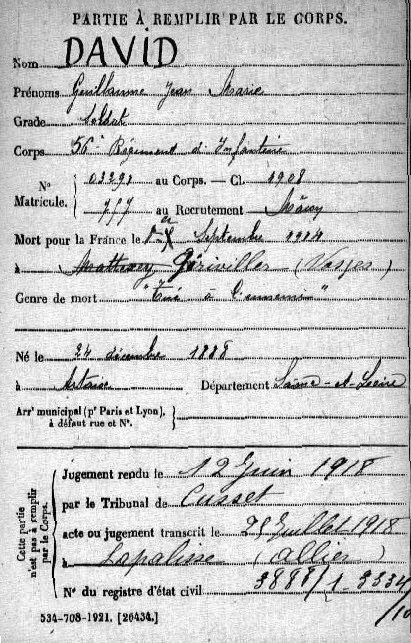 PARTIE À REMPLIR PAR LE CORPS.
Nom DAVID
Prénoms Guillaume Jean Marie
Grade Soldat
Corps 56e Régiment d'Infanterie
N° Matricule. 03291 au Corps. — Cl. 1908
757 au Recrutement Mâcon
Mort pour la France le Septembre 1914
à Mattexey Gérivillers (Vosges)
Genre de mort "Tué à l'ennemi"
Né le 24 décembre 1888
à Département Saône-et-Loire
Arrt municipal (pr Paris et Lyon), à défaut rue et N°.
Cette partie n'est pas à remplir par le Corps.
Jugement rendu le 12 Juin 1918
par le Tribunal de Cusset
acte ou jugement transcrit le 25 Juillet 1918
à Lapalisse (Allier)
N° du registre d'état civil
534-708-1921. [26434.]